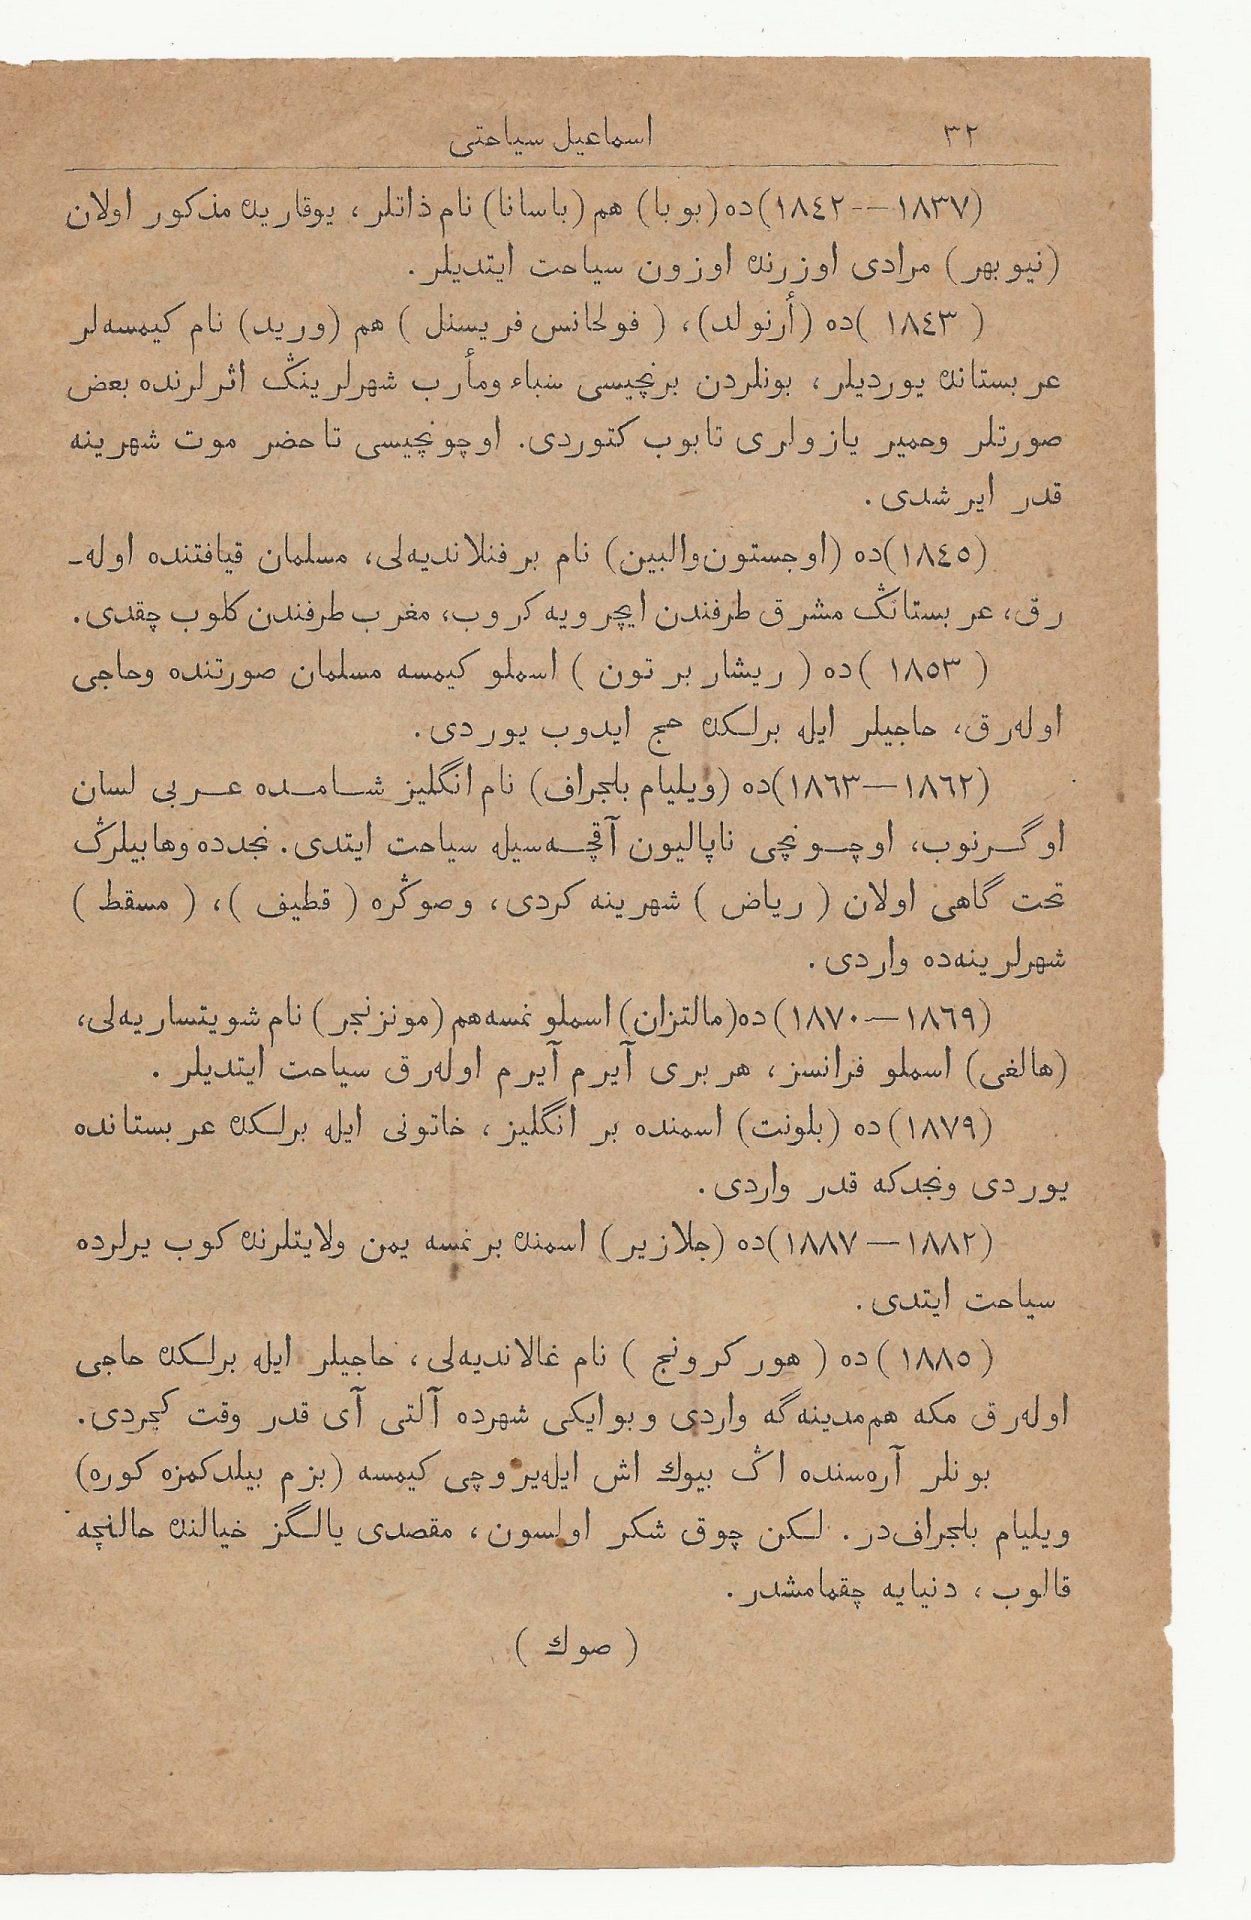 ٣٢ اسماعیل سیاحتی
(١٨٣٧—١٨٤٢)ده (بوبا) هم (باسانا) نام ذاتلر، یوقاریده مذکور اولان
(نیوبهر) مرادی اوزرنده اوزون سیاحت ایتدیلر.
( ١٨٤٣ )ده (أرنولد)، ( فولجانس فریسنل ) هم (ورید) نام کیمسه‌لر
عربستانده یوردیلر، بونلردن برنچیسی سباء ومأرب شهرلرینڭ اثرلرنده بعض
صورتلر وحمیر یازولری تابوب کتوردی. اوچونچیسی تا حضر موت شهرینه
قدر ایرشدی.
(١٨٤٥)ده (اوجستون‌والبین) نام بر فنلاندیه‌لی، مسلمان قیافتنده اوله‌ـ
رق، عربستانڭ مشرق طرفندن ایچرویه کروب، مغرب طرفندن کلوب چقدی.
( ١٨٥٣ )ده ( ریشار برتون ) اسملو کیمسه مسلمان صورتنده وحاجی
اوله‌رق، حاجیلر ایله برلکده حج ایدوب یوردی.
(١٨٦٢—١٨٦٣)ده (ویلیام بلجراف) نام انگلیز شامده عربی لسان
اوگرنوب، اوچونچی ناپالیون آقچه‌سیله سیاحت ایتدی. نجدده وهابیلرڭ
تحت گاهی اولان ( ریاض ) شهرینه کردی، وصوڭره ( قطیف )، ( مسقط )
شهرلرینه‌ده واردی.
(١٨٦٩—١٨٧٠)ده(مالتزان) اسملو نمسه‌هم (مونزنجر) نام شویتساریه‌لی،
(هالغی) اسملو فرانسز، هربری آیرم آیرم اوله‌رق سیاحت ایتدیلر .
(١٨٧٩)ده (بلونت) اسمنده بر انگلیز، خاتونی ایله برلکده عربستانده
یوردی ونجدکه قدر واردی.
(١٨٨٢—١٨٨٧)ده (جلازیر) اسمنده برنمسه یمن ولایتلرنده کوب یرلرده
سیاحت ایتدی.
(١٨٨٥)ده ( هورکرونج ) نام غالاندیه‌لی، حاجیلر ایله برلکده حاجی
اوله‌رق مکه هم‌مدینه‌گه واردی وبوایکی شهرده آلتی آی قدر وقت کچردی.
بونلر آره‌سنده اڭ بیوك اش ایله‌یروچی کیمسه (بزم بیلدکمزه کوره)
ویلیام بلجراف‌در. لکن چوق شکر اولسون، مقصدی یالگز خیالنده حالنچه
قالوب، دنیایه چقمامشدر.
( صوك )